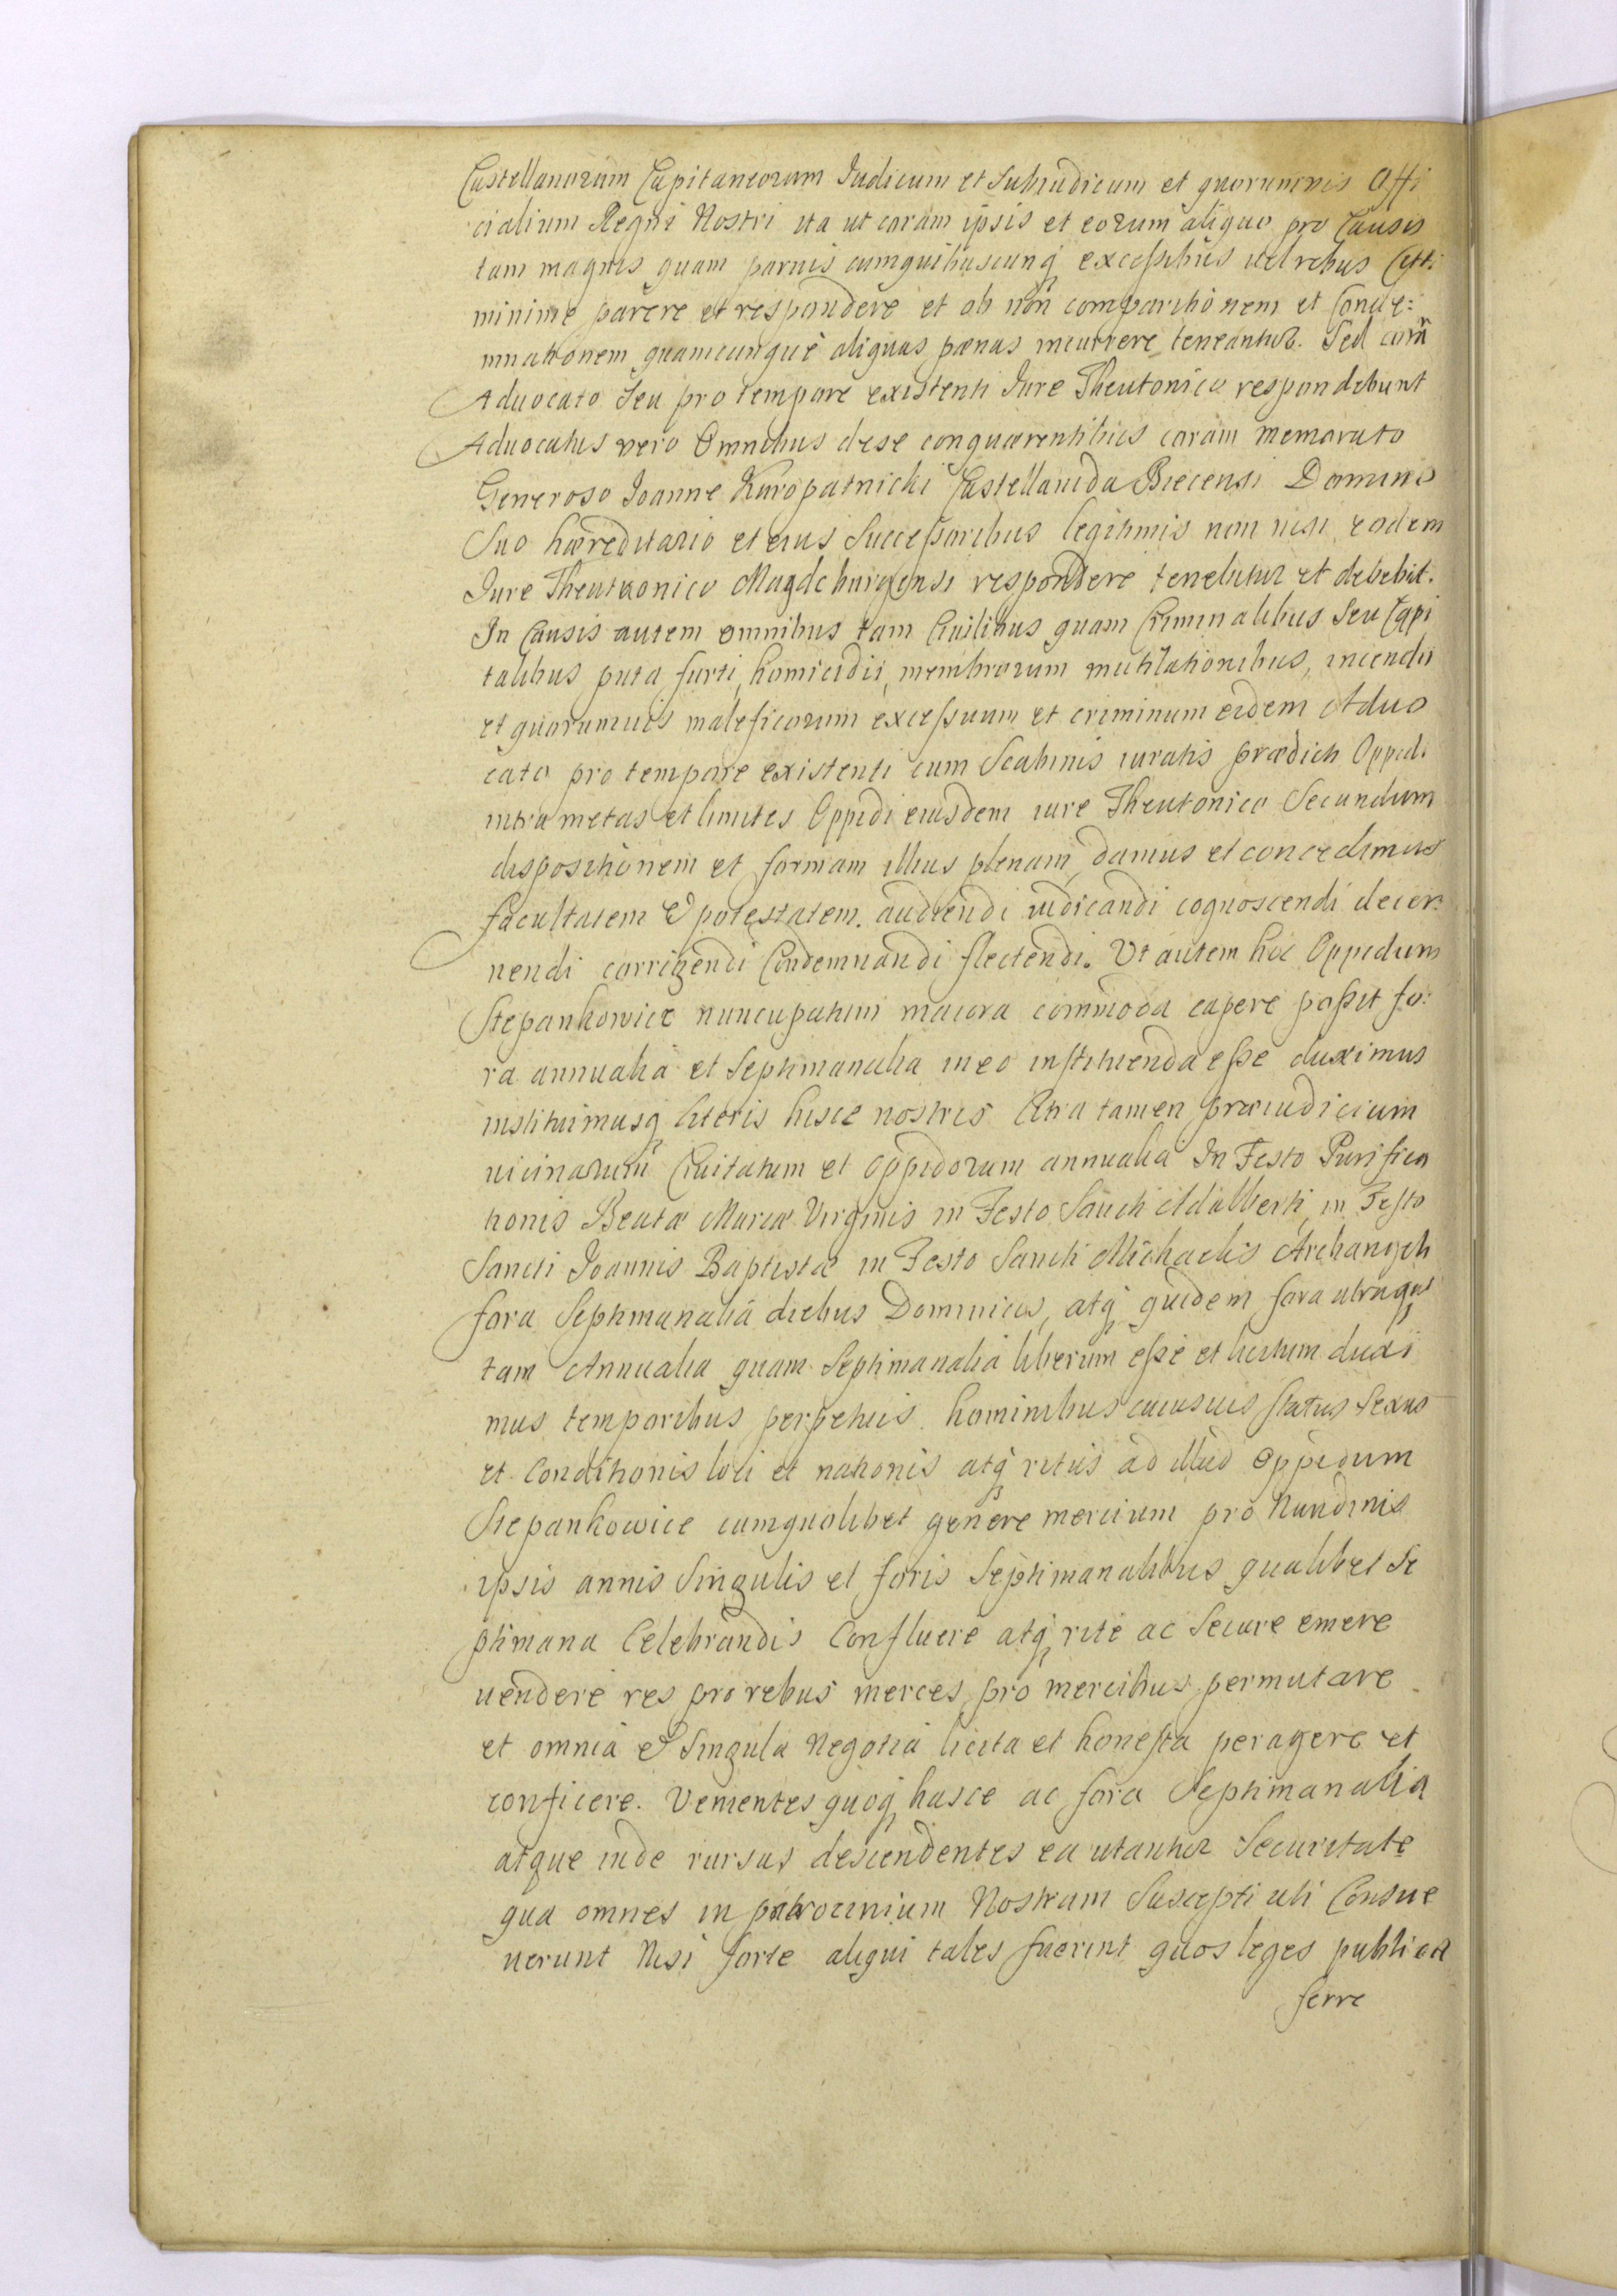 Castellanorum Capitaneorum Iudicum et Subiudicum et quorumuis Offi
cialium Regni Nostri ita ut coram ipsis et eorum aliquo pro Causis
tam magnis quam paruis cumquibuscunq excessibus uel rebus
minime parere et respondere et ob non comparitionem et Conde:
mnationem quamcunque aliquas pœnas incurrere teneantur. Sed corã
Aduocato Seu pro tempore existenti Iure Theutonico respondebunt
Aduocatus vero Omnibus dese conquærentibus coram memorato
Generoso Ioanne Kuropatnicki Castellanida Biecensi Domino
Suo hæreditario et eius Successoribus legitimis non nisi eodem
Iure Theutkonico Magdeburgensi respondere tenebitur et debebit.
In Causis autem omnibus tam Ciuilibus quam Criminalibus Seu Capi
talibus puta furti, homicidii, membrorum mutilationibus, incendii
et quorumuis maleficorum excessuum et criminum eidem Aduo
cato pro tempore existenti cum Scabinis iuratis prædicti Oppidi
intra metas et limites Oppidi eiusdem iure Theutonico Secundum
dispositionem et formam illius plenam, damus et concedimus
facultatem & potestatem. audiendi iudicandi cognoscendi decer:
nendi corrigendi Condemnandi flectendi. Vt autem hoc Oppidum
Stepankowice nuncupatum maiora commoda capere possit fo:
ra annualia et Septimanalia in eo instituenda esse duximus
instituimusq literis hisce nostris Citra tamen præiudicium
uicinarum Ciuitatum et Oppidorum annualia In Festo Purifica
tionis Beatæ Mariæ Virginis in Festo Sancti Adalberti, in Festo
Sancti Ioannis Baptistæ in Festo Sancti Michaelis Archangeli
fora Septimanalia diebus Dominicis, atq quidem fora utraque
tam Annualia quam Septimanalia liberum esse et licitum duxi
mus temporibus perpetuis hominibus cuiusuis status Sexus
et Conditionis loci et nationis atq ritus ad illud Oppidum
Stepankowice cumquolibet genere mercium pro Nundinis
ipsis annis Singulis et foris Septimanalibus qualibet Se
ptimana Celebrandis Confluere atq rite ac Secure emere
uendere res pro rebus merces pro mercibus permutare
et omnia & Singula Negotia licita et honesta peragere et
conficere. Venientes quoq hasce ac fora Septimanalia
atque inde rursus descendentes ea utantur Securitate
qua omnes in patrocinium Nostrum Suscepti uti Consue
uerunt Nisi forte aliqui tales fuerint quos leges publica
ferre